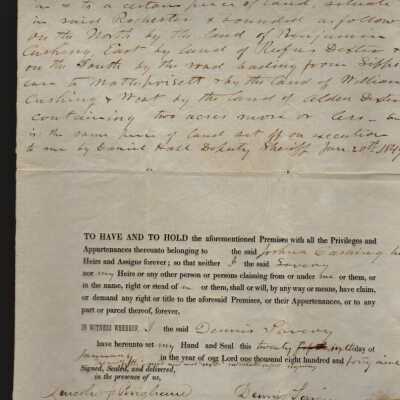 in & to a certain piece of land, situate
in said Rochester & bounded as follow
on the North by the land of Benjamin
Cushing, East by land of Rufus Dexter &
on the South by the road leading from Sippi
can to Mattapoisett & by the land of William
Cushing & West by the land of Alden Dexter
containing two acres more or less-
is the same piece of land set off on execution
to me by Daniel Hall Deputy Sheriff Jan 20th 184
TO HAVE AND TO HOLD the aforementioned Premises with all the Privileges and
Appurtenances thereunto belonging to the said Joshua Cushing his
Heirs and Assigns forever; so that neither I the said Savery
nor my Heirs or any other person or persons claiming from or under me or them, or
in the name, right or stead of me or them, shall or will, by any way or means, have claim,
or demand any right or title to the aforesaid Premises, or their Appurtenances, or to any
part or parcel thereof, forever.
IN WITNESS WHEREOF, I the said Dennis Savery
have hereunto set my Hand and Seal this twenty day of
January in the year of our Lord one thousand eight hundred and forty nine
Signed, Sealed, and delivered,
in the presence of us,
Dennis Savery